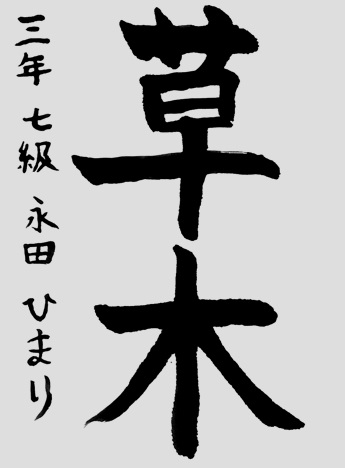 草木
三年 七級 永田 ひまり